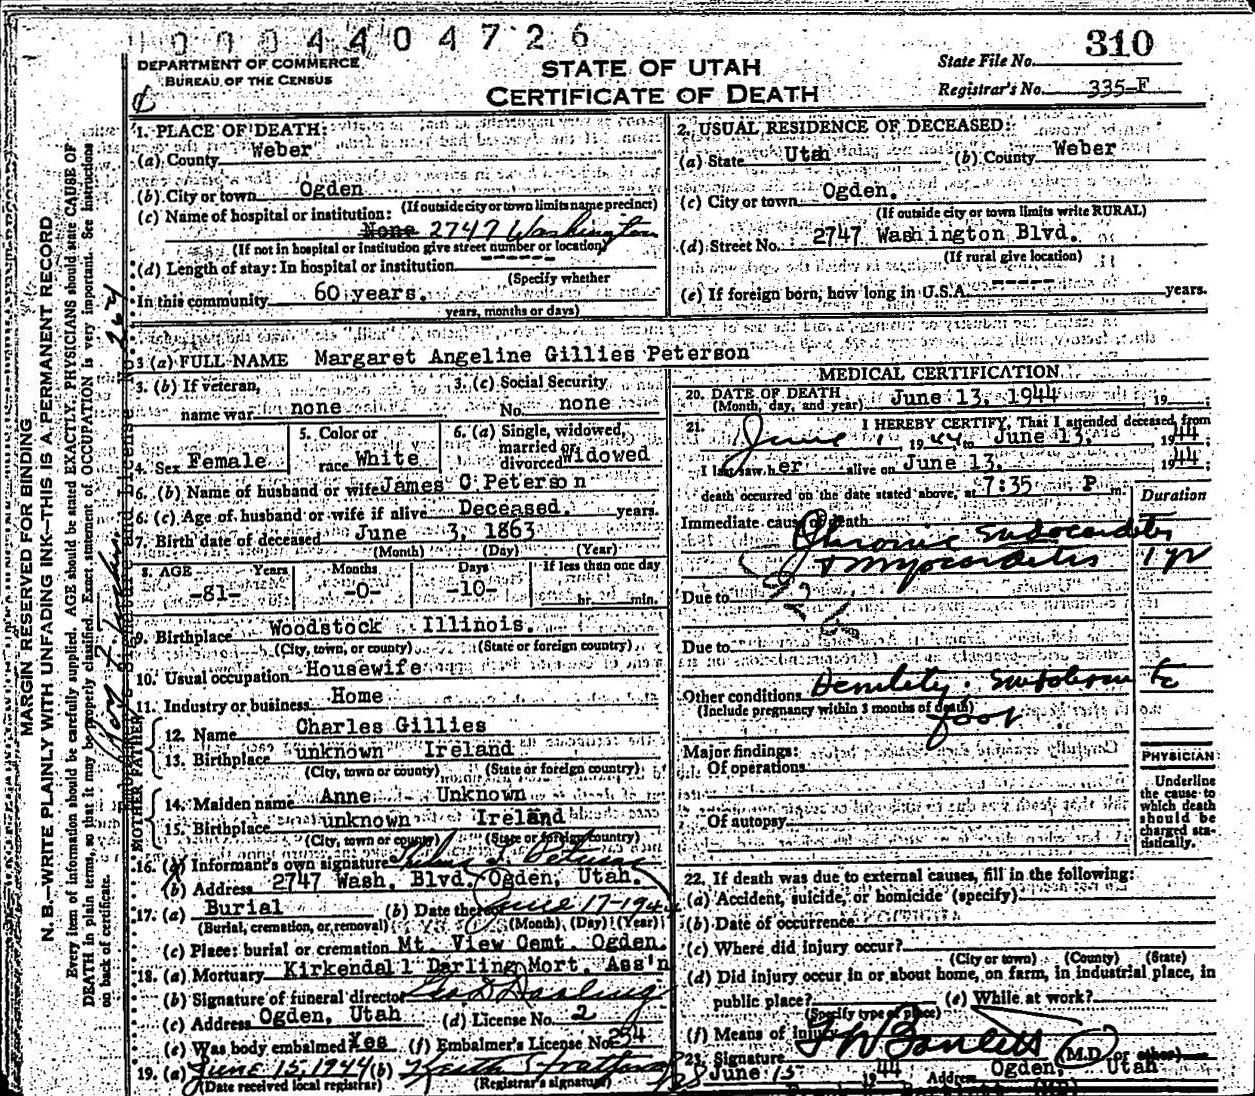 0004404726
DEPARTMENT OF COMMERCE
BUREAU OF THE CENSUS
STATE OF UTAH
CERTIFICATE OF DEATH
State File No. 310
Registrar's No. 335-F
MARGIN RESERVED FOR BINDING
N. B.—WRITE PLAINLY WITH UNFADING INK—THIS IS A PERMANENT RECORD
Every item of information should be carefully supplied. AGE should be stated EXACTLY. PHYSICIANS should state CAUSE OF
DEATH in plain terms, so that it may be properly classified. Exact statement of OCCUPATION is very important. See instructions
on back of certificate.
1. PLACE OF DEATH:
(a) County Weber
(b) City or town Ogden
(If outside city or town limits name precinct)
(c) Name of hospital or institution:
None 2747 Washington
(If not in hospital or institution give street number or location)
(d) Length of stay: In hospital or institution
(Specify whether
In this community 60 years.
years, months or days)
2. USUAL RESIDENCE OF DECEASED:
(a) State Utah (b) County Weber
(c) City or town Ogden.
(If outside city or town limits write RURAL)
(d) Street No. 2747 Washington Blvd.
(If rural give location)
(e) If foreign born, how long in U.S.A. ----- years.
3 (a) FULL NAME Margaret Angeline Gillies Peterson
3. (b) If veteran,
name war none
3. (c) Social Security
No. none
4. Sex Female
5. Color or
race White
6. (a) Single, widowed,
married or
divorced Widowed
6. (b) Name of husband or wife James C Peterson
6. (c) Age of husband or wife if alive Deceased. years.
7. Birth date of deceased June 3, 1863
(Month) (Day) (Year)
8. AGE Years Months Days If less than one day
-81- -0- -10- hr. min.
9. Birthplace Woodstock Illinois.
(City, town, or county) (State or foreign country)
10. Usual occupation Housewife
11. Industry or business Home
FATHER
12. Name Charles Gillies
13. Birthplace unknown Ireland
(City, town or county) (State or foreign country)
MOTHER
14. Maiden name Anne Unknown
15. Birthplace unknown Ireland
(City, town or county) (State or foreign country)
16. (a) Informant's own signature
(b) Address 2747 Wash. Blvd. Ogden, Utah.
17. (a) Burial (b) Date thereof June 17-1944
(Burial, cremation, or removal) (Month) (Day) (Year)
(c) Place: burial or cremation Mt. View Cemt. Ogden.
18. (a) Mortuary Kirkendall Darling Mort. Ass'n
(b) Signature of funeral director Geo D Darling
(c) Address Ogden, Utah (d) License No. 2
(e) Was body embalmed Yes (f) Embalmer's License No. 254
19. (a) June 15, 1944 (b) Keith Stratford
(Date received local registrar) (Registrar's signature)
MEDICAL CERTIFICATION
20. DATE OF DEATH June 13, 1944, 19
(Month, day, and year)
21. I HEREBY CERTIFY, That I attended deceased from
June 1 1944 to June 13, 1944;
I last saw her alive on June 13, 1944;
death occurred on the date stated above, at 7:35 P m.
Duration
Immediate cause of death
Chronic Endocarditis
+ Myocarditis 1 yr
Due to
Due to
Other conditions
(Include pregnancy within 3 months of death)
foot
Major findings:
Of operations
Of autopsy
PHYSICIAN
Underline
the cause to
which death
should be
charged sta-
tistically.
22. If death was due to external causes, fill in the following:
(a) Accident, suicide, or homicide (specify)
(b) Date of occurrence
(c) Where did injury occur?
(City or town) (County) (State)
(d) Did injury occur in or about home, on farm, in industrial place, in
public place? (e) While at work?
(Specify type of place)
(f) Means of injury
23. Signature (M.D. or other)
June 15 1944 Address Ogden, Utah